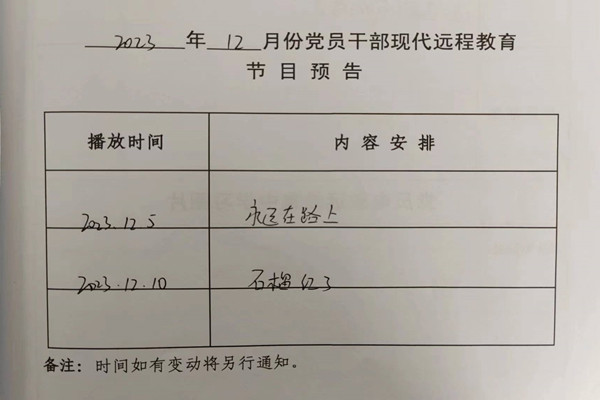 2023 年 12 月份党员干部现代远程教育
节目预告
播放时间 内容安排
2023.12 5 永远在路上
2023.12.10 石榴红了
备注：时间如有变动将另行通知。